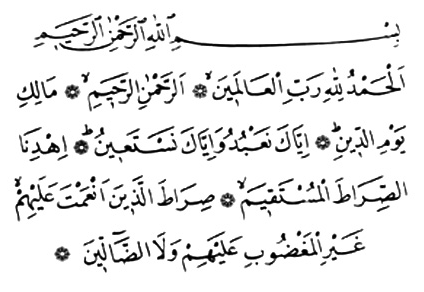 بِسْمِ اللهِ الرَّحْمٰنِ الرَّحِيمِ
اَلْحَمْدُ لِلّٰهِ رَبِّ الْعَالَمِينَۙ ❁ اَلرَّحْمٰنِ الرَّحِيمِۙ ❁ مَالِكِ
يَوْمِ الدِّينِۜ ❁ اِيَّاكَ نَعْبُدُ وَاِيَّاكَ نَسْتَعِينُۜ ❁ اِهْدِنَا
الصِّرَاطَ الْمُسْتَقِيمَۙ ❁ صِرَاطَ الَّذِينَ اَنْعَمْتَ عَلَيْهِمْۙ
غَيْرِ الْمَغْضُوبِ عَلَيْهِمْ وَلَا الضَّٓالِّينَ ❁